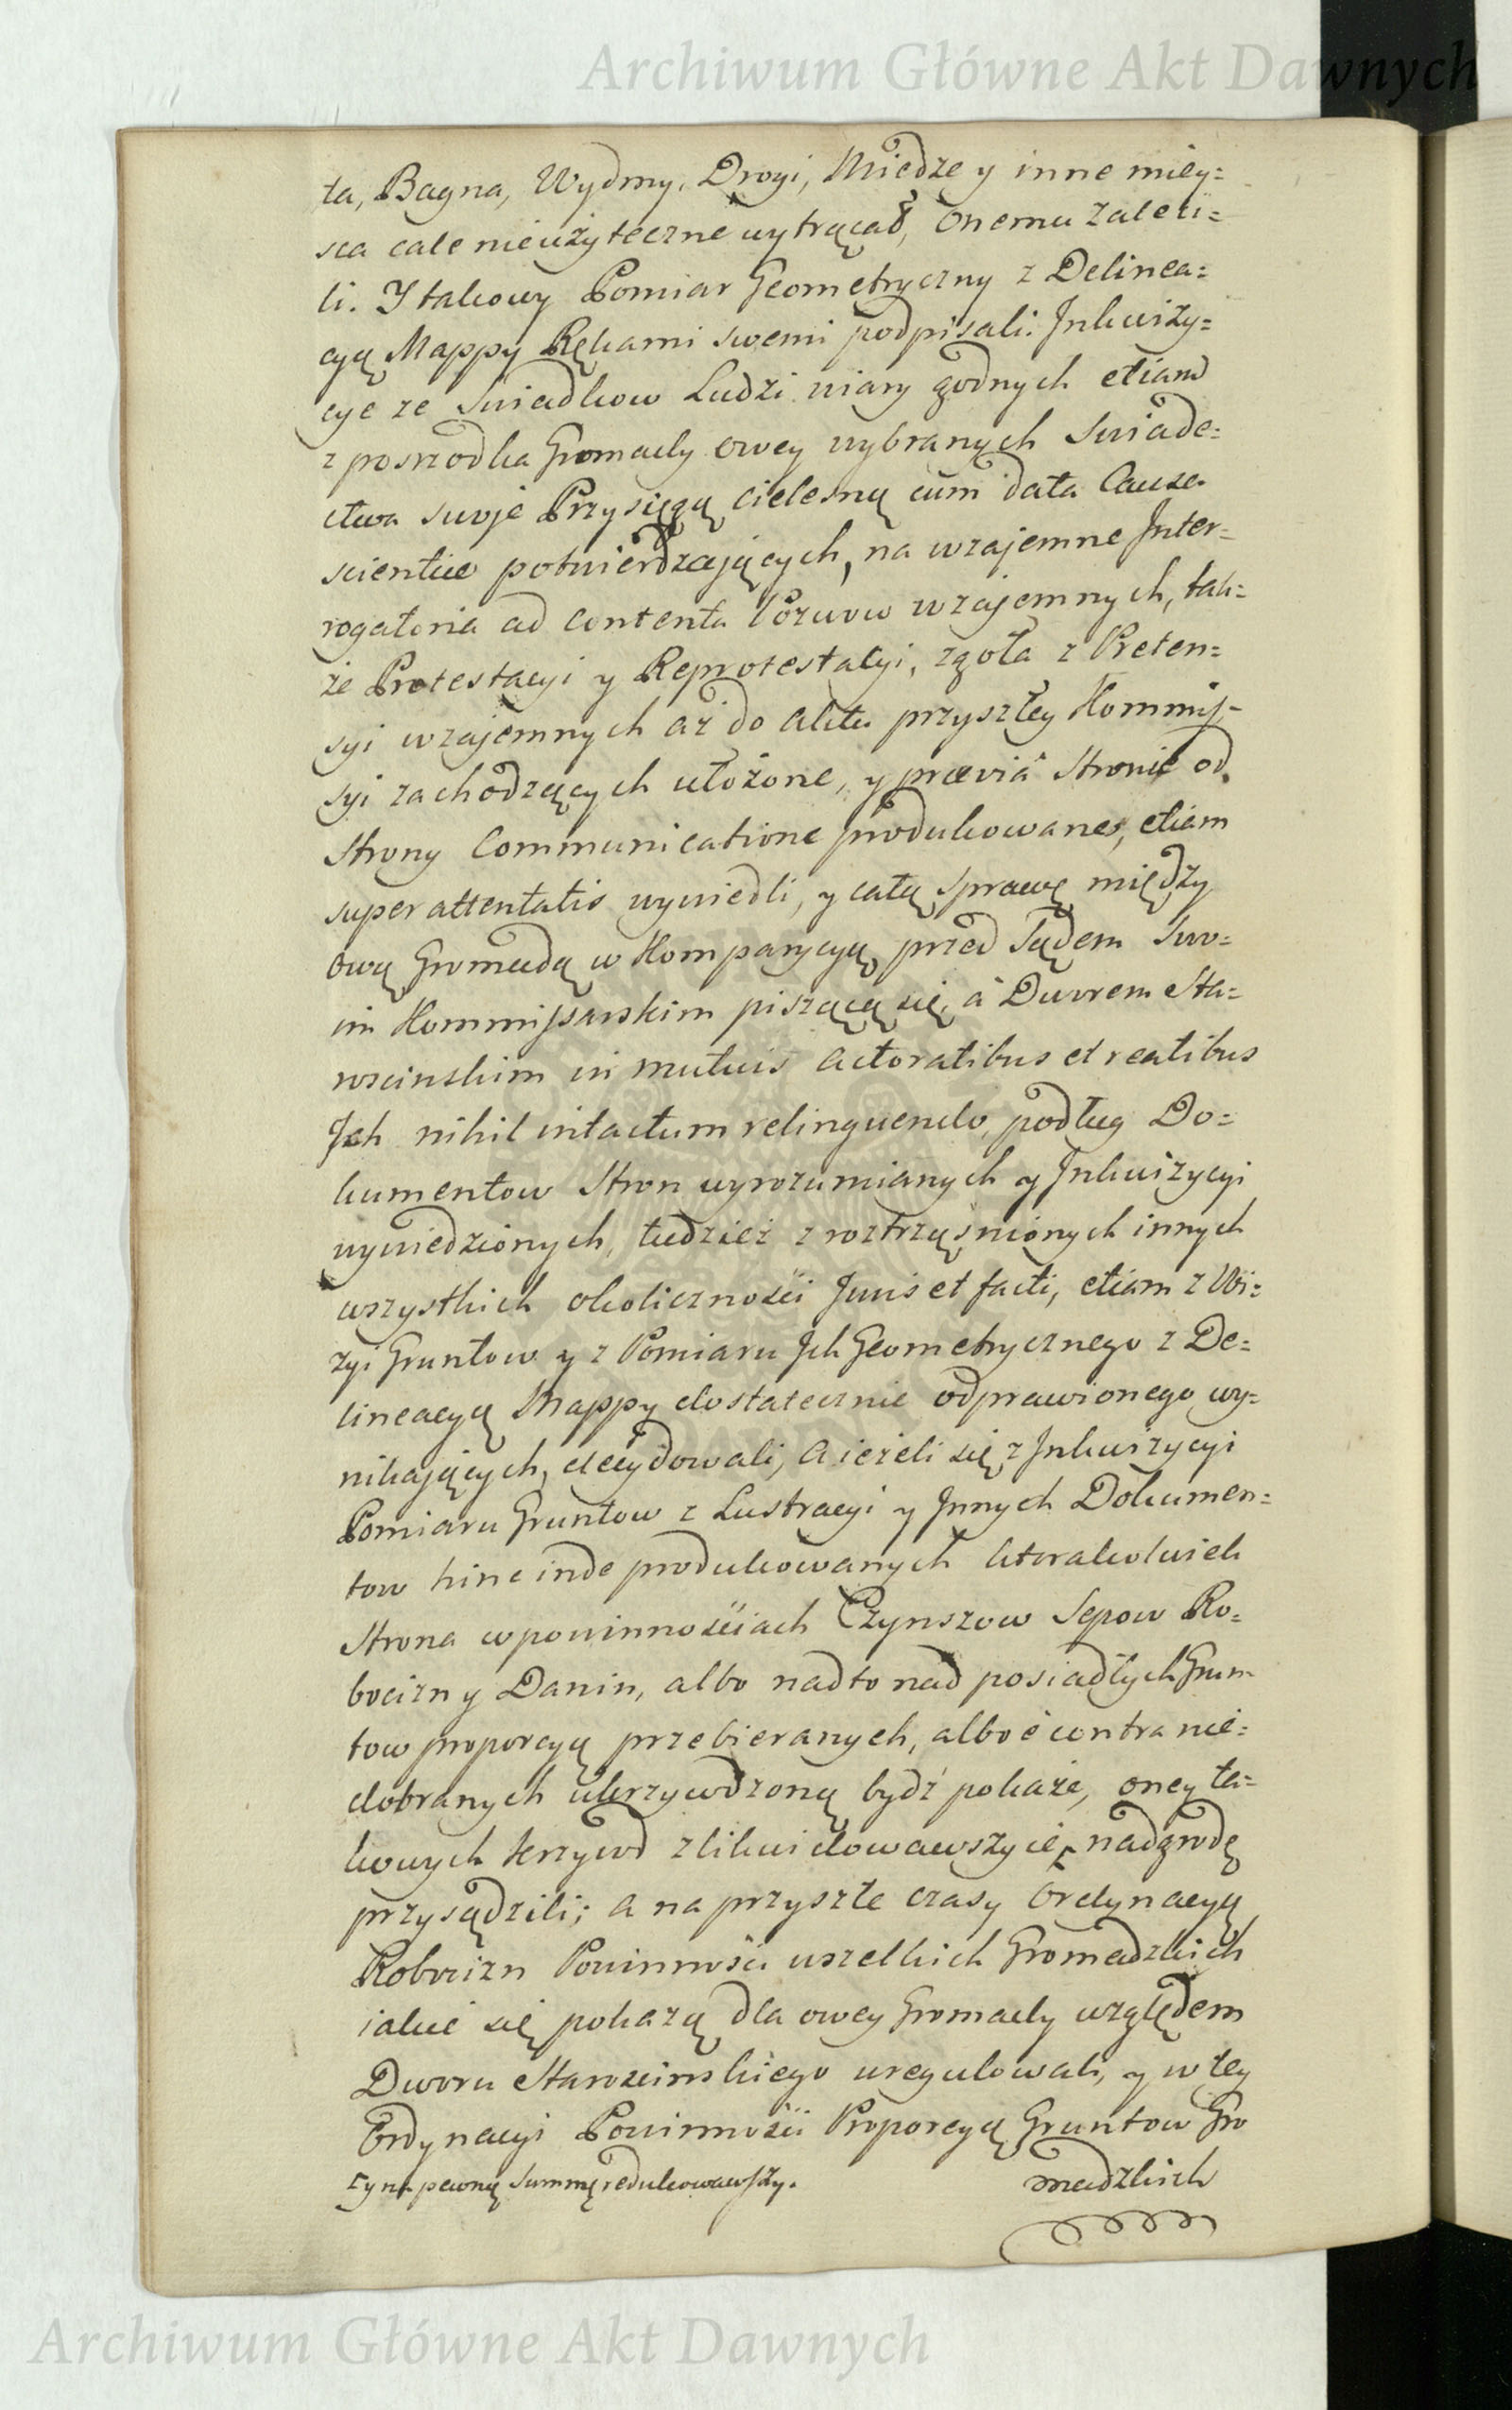 Archiwum Główne Akt Dawnych
ta, Bagna, Wydmy, Drogi, Miedze y inne miey=
sca cale nieużyteczne wytrącał, Onemu zaleci=
li. Y takowy Pomiar Geometryczny z Delinea=
cyą Mappy Rękami swemi podpisali. Inkwizy=
cye ze Swiadkow Ludzi wiary godnych etiam
z posrzodka Gromady owey wybranych Swiade=
ctwa swoje Przysięgą cielesną cum data Causa
scientiae potwierdzających, na wzajemne Inter=
rogatoria ad contenta Pozwow wzajemnych, tak=
że Protestacyi y Reprotestacyi, zgoła z Preten=
syi wzajemnych aż do aktu przyszłey Kommis=
syi zachodzących ułożone, y praevia Stronie od
Strony Communicatione produkowane, etiam
super attentatis wywiedli, y całą sprawę między
ową Gromadą w Komparycyą przed Sądem Swo=
im Kommissarskim piszącą się, á Dworem Sta=
roscinskim in mutuis actoratibus et reatibus
Jch nihil intactum relinquendo, podług Do=
kumentow Stron wyrozumianych y Inkwizycyi
wywiedzionych, tudzież z roztrząśnionych innych
wszystkich okolicznośći Juris et facti, etiam z Wi=
zyi Gruntow y z Pomiaru Jch Geometrycznego z De=
lineacyą Mappy dostatecznie odprawionego wy=
nikających, decydowali, A ieżeli się z Inkwizycyi
Pomiaru Gruntow z Lustracyi y Innych Dokumen=
tow hinc inde produkowanych ktorakolwiek
Strona w powinnośćiach Czynszow Sepow Ro=
bocizn y Danin, albo nadto nad posiadłych Grun
tow proporcyą przebieranych, albo é contra nie=
dobranych ukrzywdzoną bydź pokaże, oney ta=
kowych krzywd zlikwidowawszy ie, nadgrodę
przysądzili; a na przyszłe czasy Ordynacyą
Robocizn Powinności wszelkich Gromadzkich
iakie się pokażą dla owey Gromady względem
Dworu Staroscinskiego uregulowali, y w tey
Ordynacyi Powinnośći Proporcyą Gruntow Gro
madzkich
y na pewną Summę redukowawszy.
Archiwum Główne Akt Dawnych